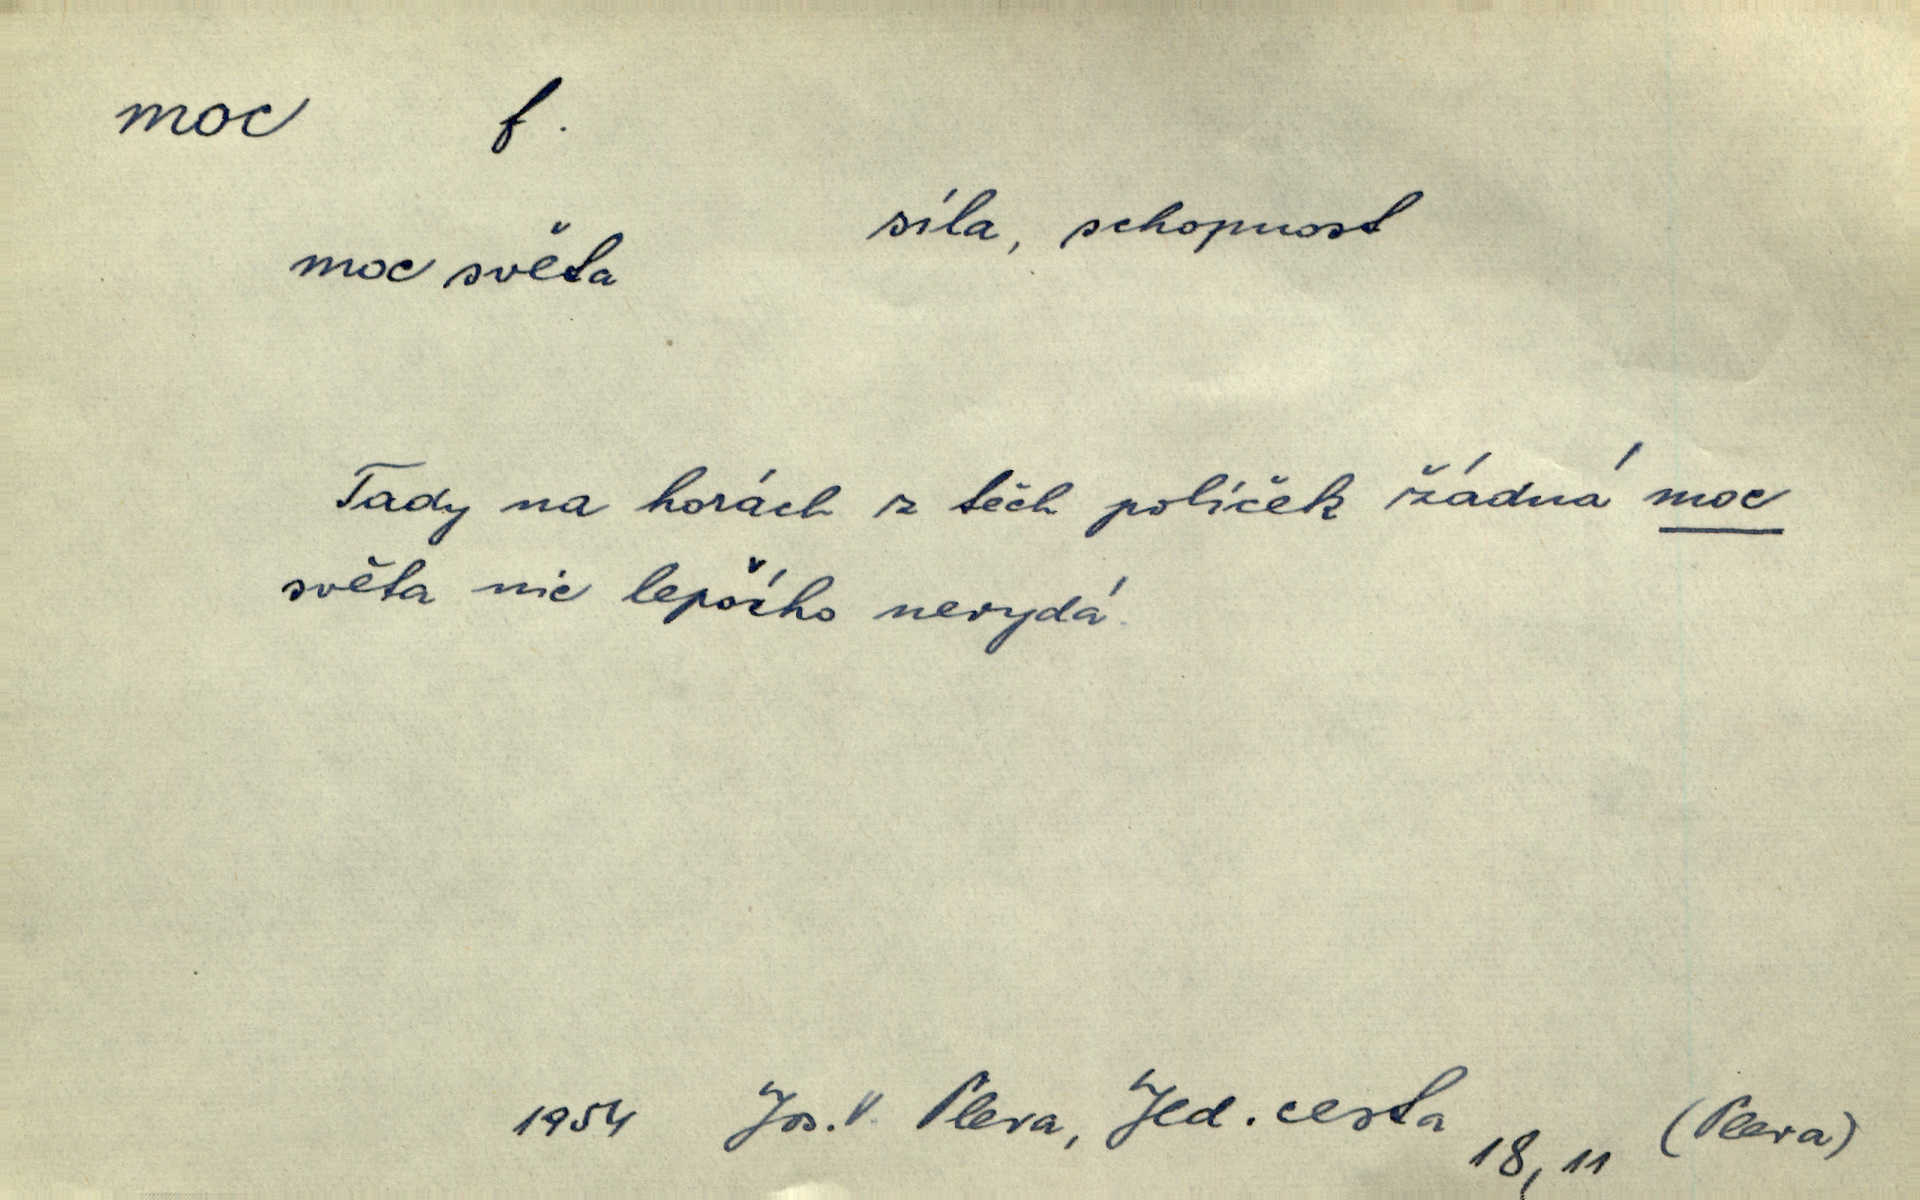 moc f.
síla, schopnost
moc světa
Tady na horách z těch políček žádná moc
světa nic lepšího nevydá.
1954 Jos. V. Pleva, Jed. cesta 18, 11 (Pleva)